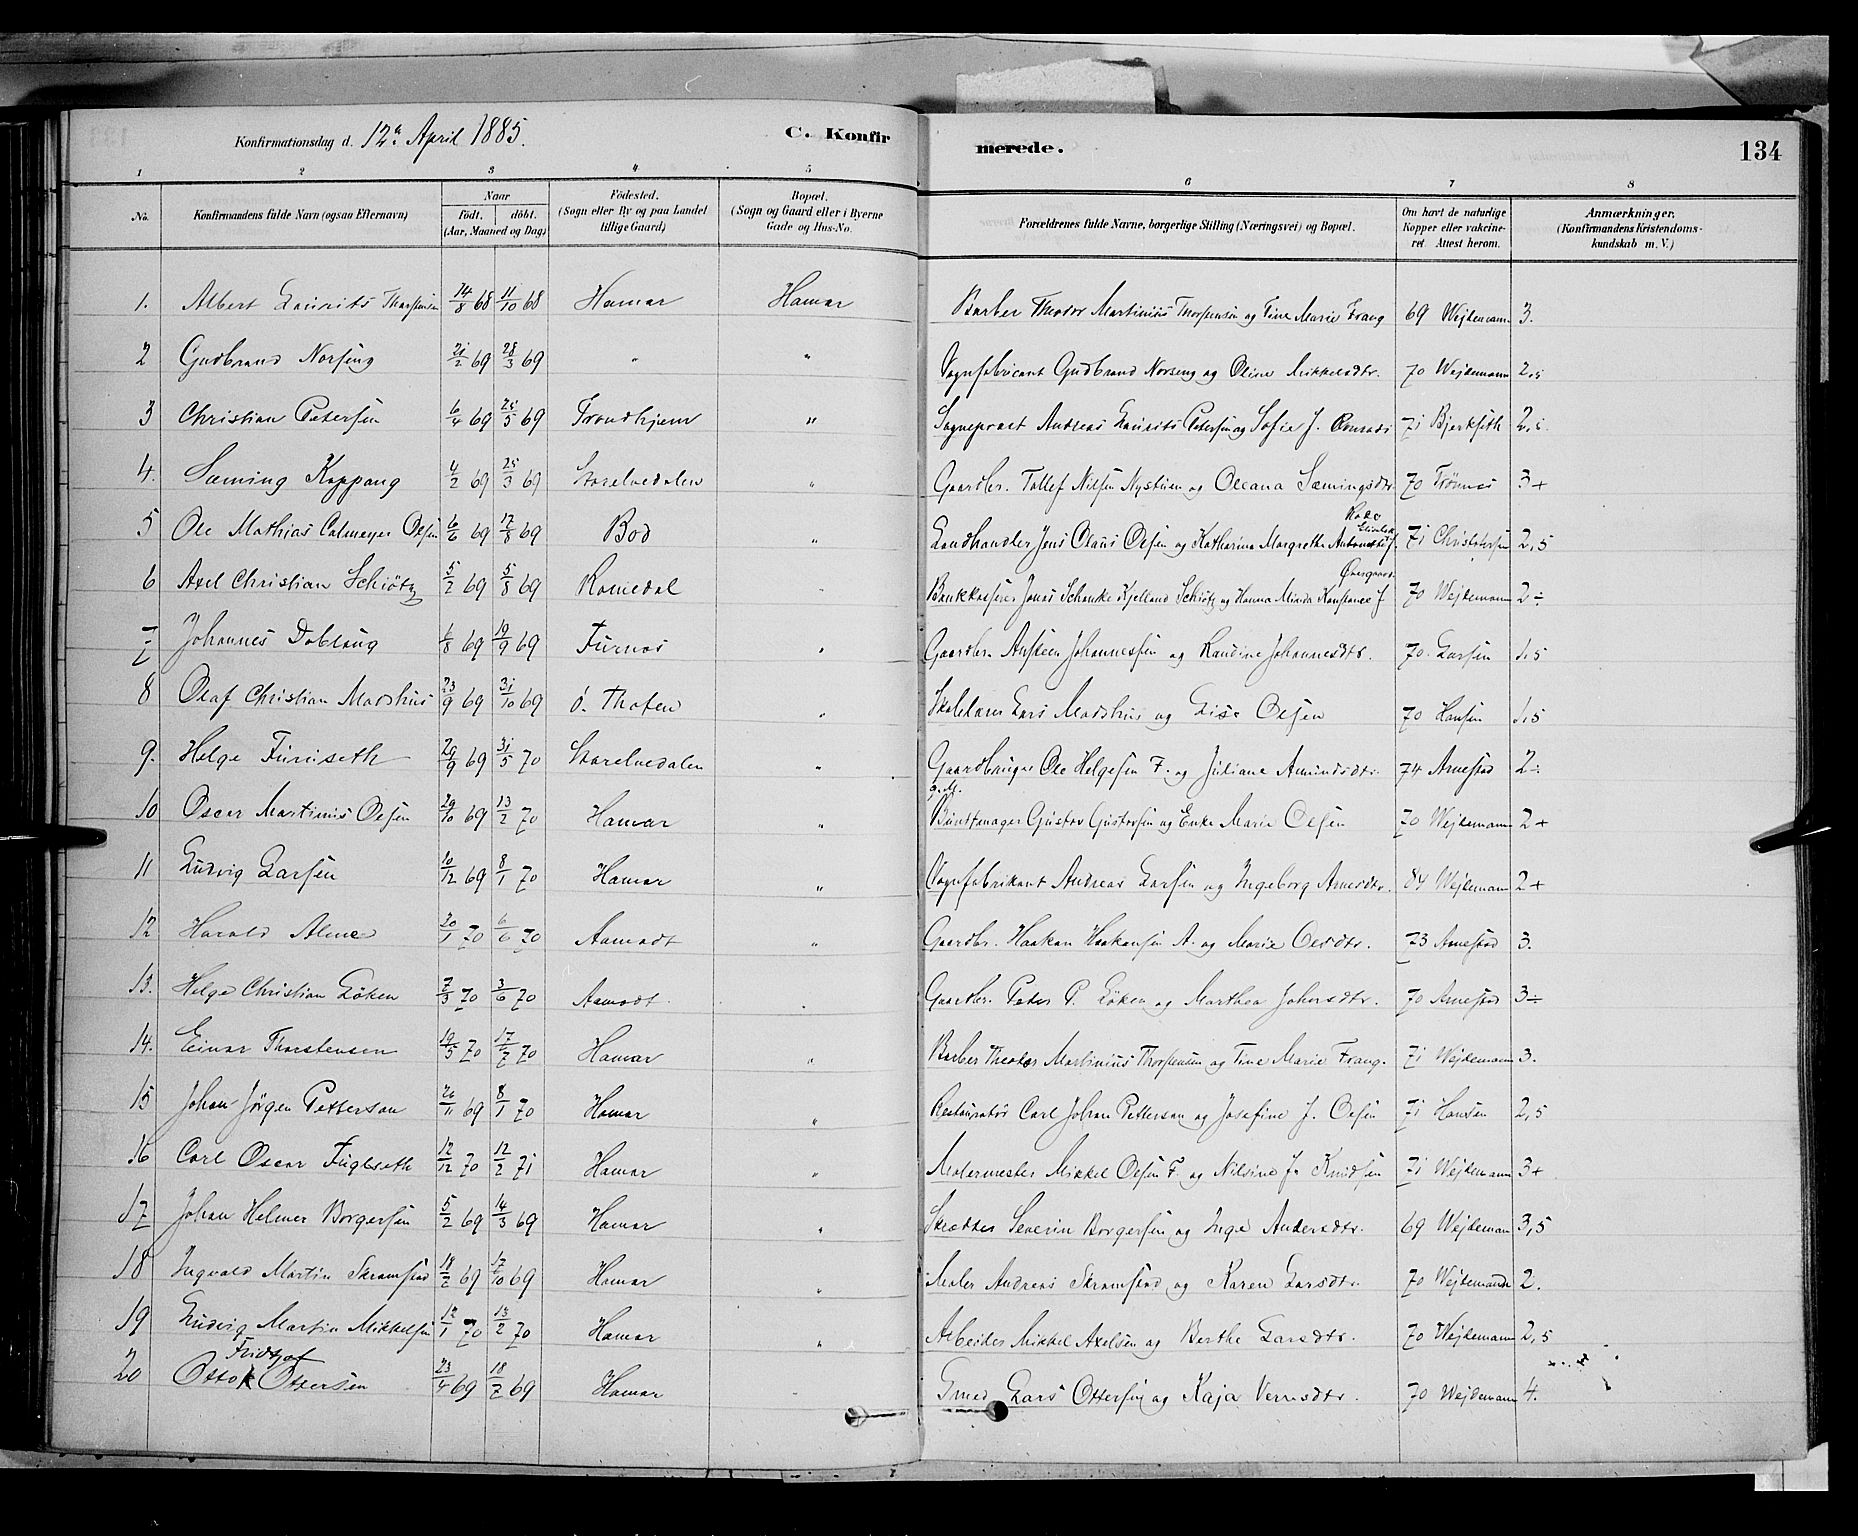 Konfirmationsdag d. 12te April 1885. C. Konfirmerede. 134
1 2 3 4 5 6 7 8
No. Konfirmandens fulde Navn (ogsaa Efternavn) Naar født. døbt. (Aar, Maaned og Dag) Fødested. (Sogn eller By og paa Landet tillige Gaard) Bopæl. (Sogn og Gaard eller i Byerne Gade og Hus-No. Forældrenes fulde Navne, borgerlige Stilling (Næringsvei) og Bopæl. Om havt de naturlige Kopper eller vakcineret. Attest herom. Anmærkninger. (Konfirmandens Kristendomskundskab m. V.)
1. Albert Laurits Thorstensen 14/8 68 11/10 68 Hamar Hamar Barber Theodor Martinius Thorstensen og Tine Marie Frang 69 Wejdemann 3.
2 Gudbrand Norseng 21/2 69 28/3 69 " " Vognfabricant Gudbrand Norseng og Oline Mikkelsdtr. 70 Wejdemann 2,5
3 Christian Petersen 6/4 69 25/5 69 Trondhjem " Sogneprest Andreas Laurits Petersen og Sofie J. 71 Bjerkseth 2,5
4. Sæming Koppang 4/2 69 25/3 69 Storelvedalen " Gaardbr. Tollef Nilsen Nystuen og Oleana Sæmingsdtr. 70 Trønnes 3+
5 Ole Mathias Calmeyer Olsen 6/6 69 12/8 69 Bod " Landhandler Jens Olaus Olsen og Katharina Margrethe 71 Christofersen 2,5
6 Axel Christian Schiøtz 5/2 69 5/8 69 Romedal " Bankkasserer Jonas Schanke Kjelland Schiøtz og Hanna Minda Konstance J Øvergaard 70 Wejdemann 2÷
7 Johannes Dobloug 6/8 69 19/9 69 Furnes " Gaardbr. Austeen Johannessen og Randine Johannesdtr. 70. Larsen 1,5
8 Olaf Christian Madshus 23/9 69 31/10 69 Ø. Thoten " Skolelærer Lars Madshus og Lise Olsen 70 Hansen 1,5
9. Helge Furuseth 29/9 69 31/5 70 Storelvedalen " Gaardbruger Ole Helgesen F. og Juliane Amundsdtr. 74 Arnestad 2÷
10 Oscar Martinius Olsen 29/10 69 13/2 70 Hamar " g. M. Buntmager Gustav Gustavsen og Enke Marie Olsen 70 Wejdemann 2+
11 Ludvig Larsen 10/12 69 8/1 70 Hamar " Vognfabrikant Andreas Larsen og Ingeborg Arnesdtr. 84 Wejdemann 2+
12 Harald Alme 20/1 70 6/6 70 Aamodt " Gaardbr. Haakon Haakonsen A. og Marie Olsdtr. 73 Arnestad 3.
13. Helge Christian Løken 7/3 70 3/6 70 Aamodt " Gaardbr. Peder P. Løken og Marthea Johnsdtr. 70 Arnestad 3÷
14. Einar Thorstensen 19/5 70 17/7 70 Hamar " Barber Theodor Martinius Thorstensen og Tine Marie Frang. 71 Wejdemann 3.
15 Johan Jørgen Petterson 26/11 69 8/1 70 Hamar " Restauratør Carl Johan Petterson og Josefine J. Olsen 71 Hansen 2,5
16 Carl Oscar Fugleseth 12/12 70 12/2 71 Hamar " Malermester Mikkel Olsen F. og Nilsine J. Knudsen 71 Wejdemann 3+
17 Johan Helmer Borgersen 5/2 69 14/3 69 Hamar " Skrædder Severin Borgersen og Inge Andersdtr. 69 Wejdeman 3,5
18 Ingvald Martin Skramstad 18/2 69 17/10 69 Hamar " Maler Andreas Skramstad og Karen Larsdtr. 70 Wejdemann 2.
19 Ludvig Martin Mikkelsen 12/1 70 13/2 70 Hamar " Arbeider Mikkel Axelsen og Berthe Larsdtr. 70 Wejdemann 2,5
20 Otto Fridtjof Ottersen 23/4 69 18/7 69 Hamar " Smed Lars Ottersen og Kaja Vernsdtr. 70 Wejdemann 4.